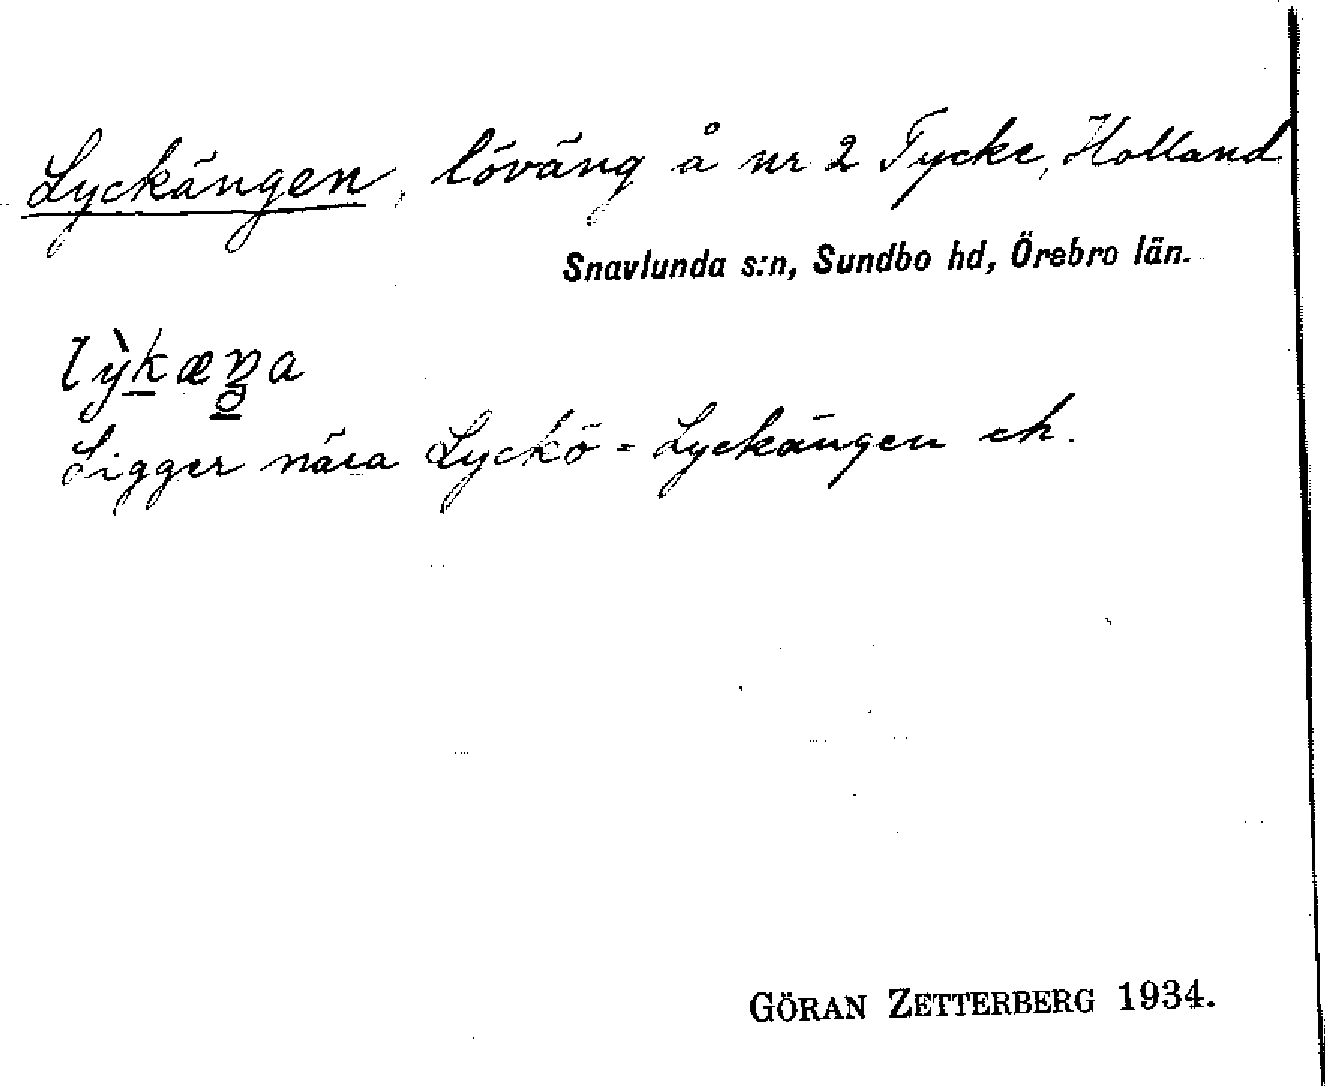 Lyckängen, löväng å nr 2 Tycke, Holland
Snavlunda s:n, Sundbo hd, Örebro län.
Ligger nära Lyckö = Lyckängen ek.
GÖRAN ZETTERBERG 1934.